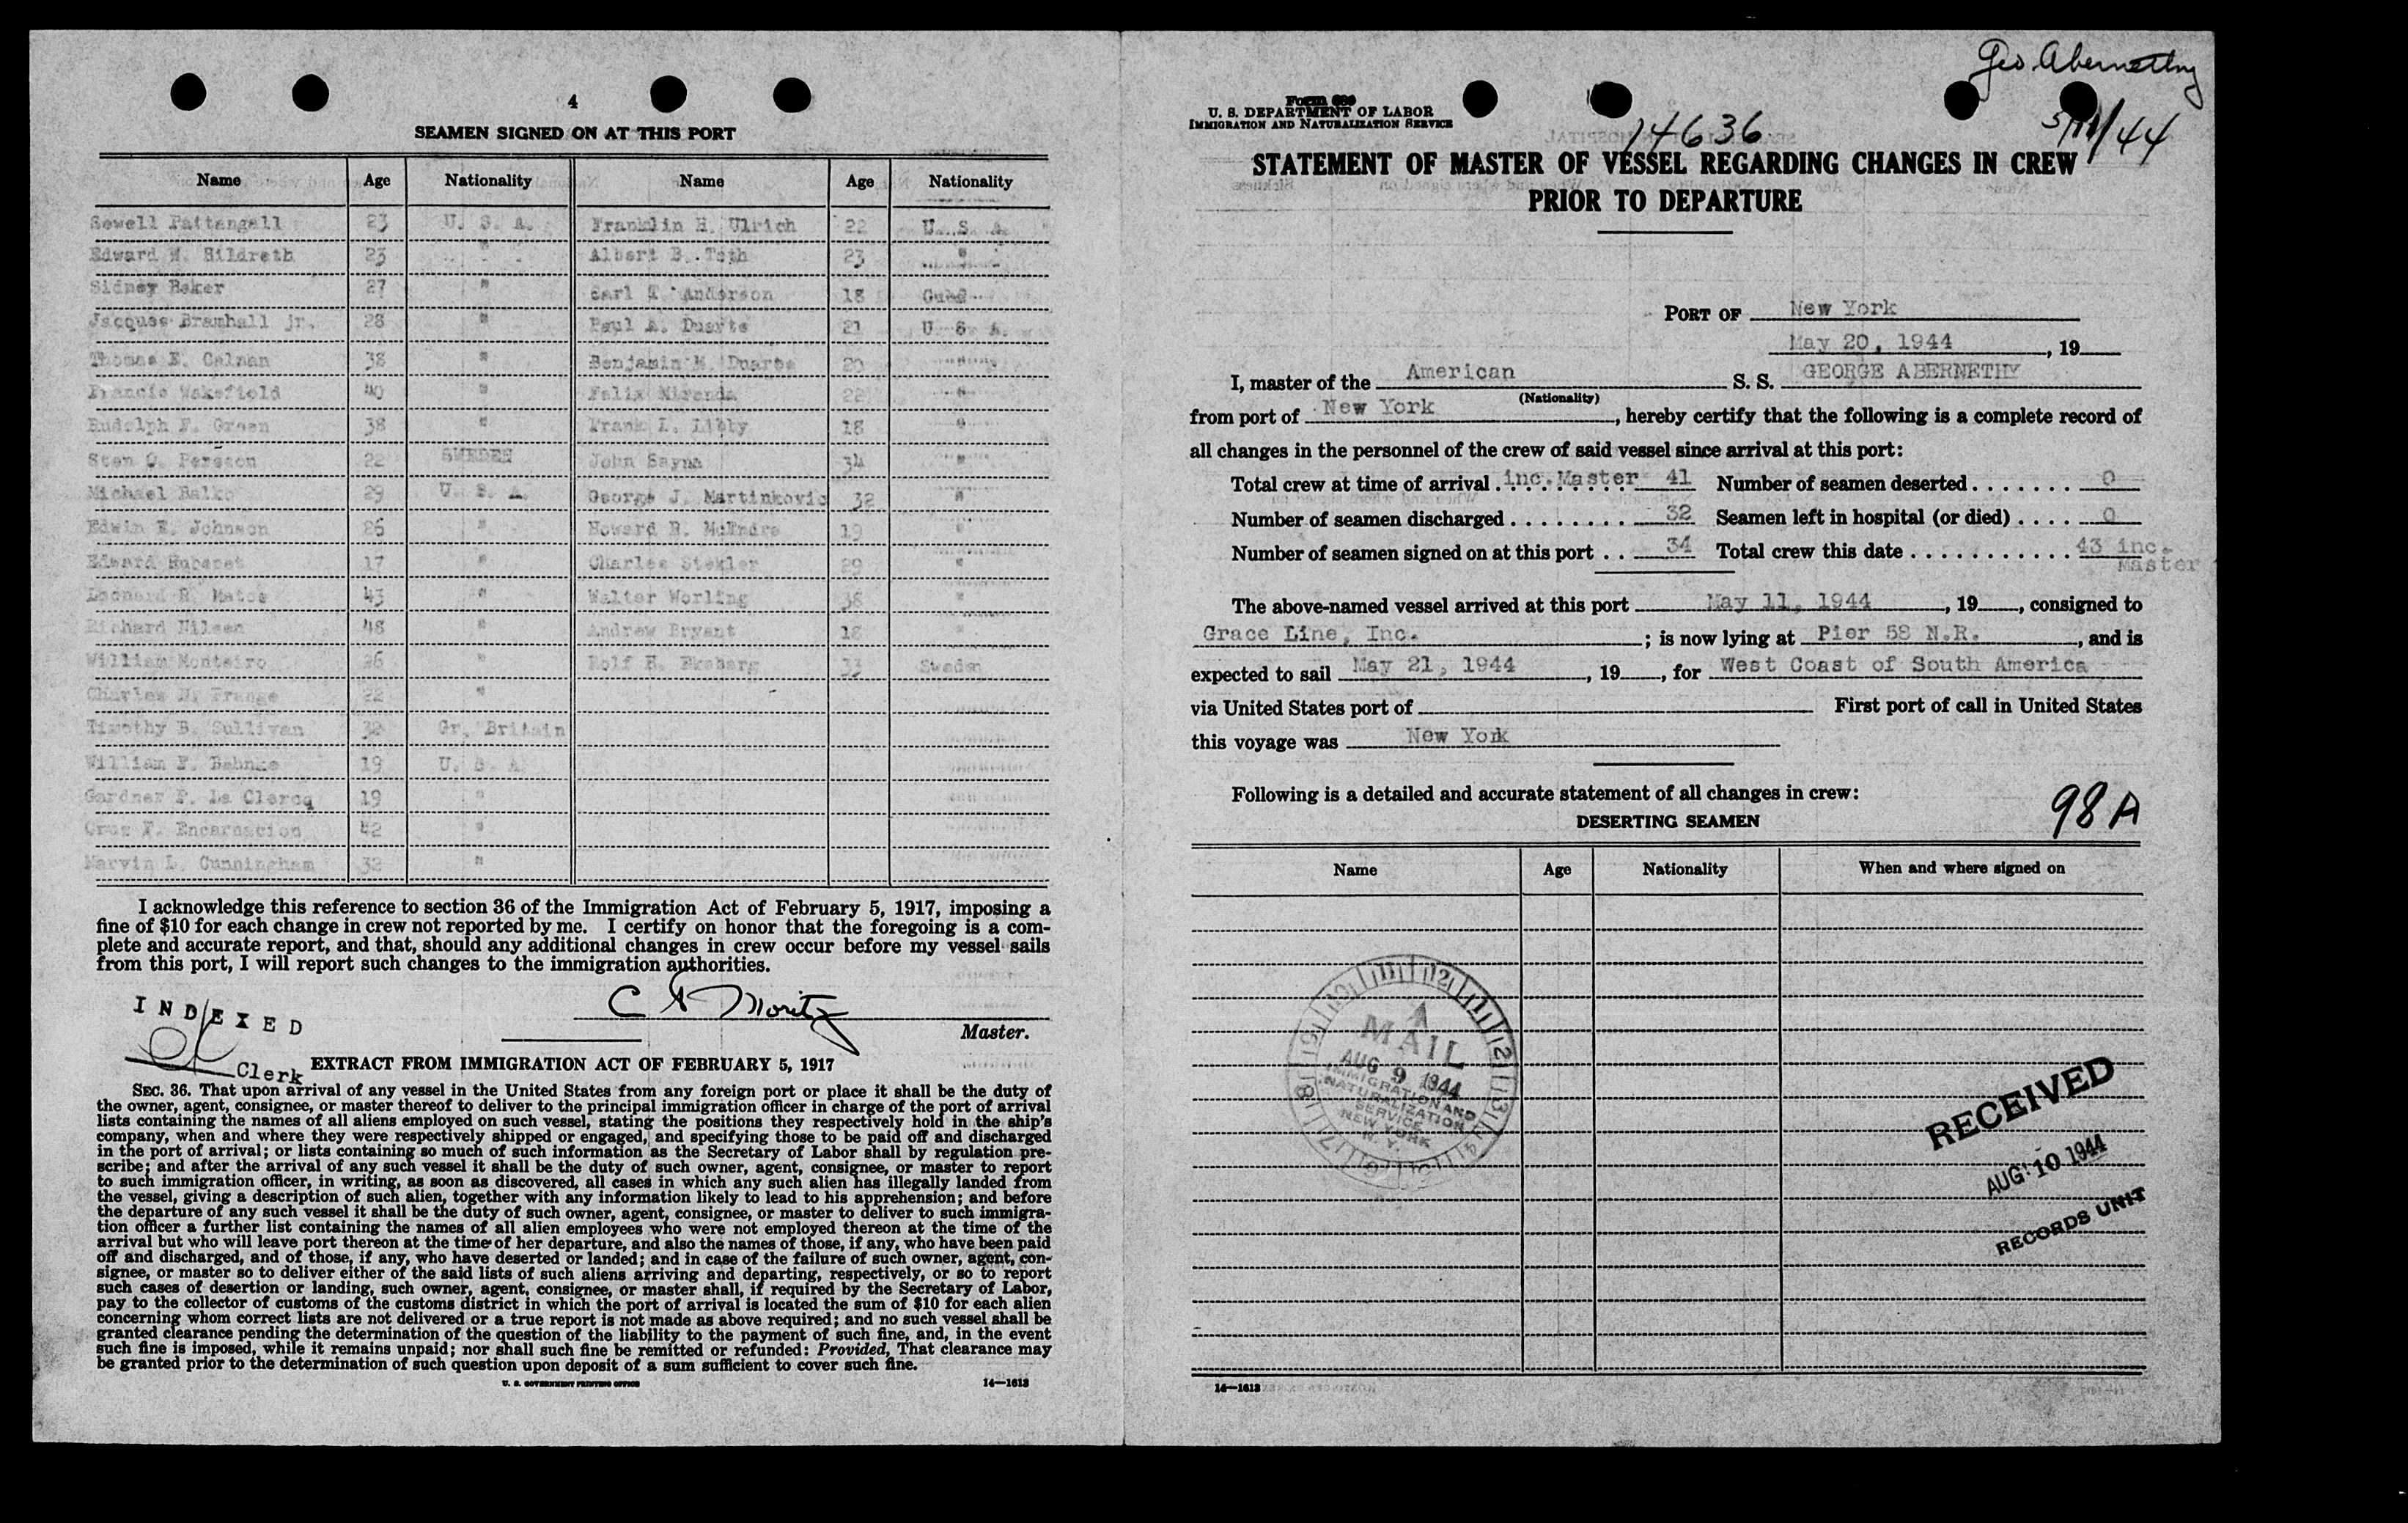 4
SEAMEN SIGNED ON AT THIS PORT
Name Age Nationality Name Age Nationality
Sewell Pattangall 23 U. S. A. Franklin H. Ulrich 22 U. S. A.
Edward W. Hildreth 23 " Albert B. Toth 23 "
Sidney Baker 27 " Earl T. Anderson 18
Jacques Bramhall jr. 28 " Paul A. Duarte 21 U. S. A.
Thomas E. Calnan 38 " Benjamin M. Duarte 20 "
Francis Wakefield 40 " Felix Miranda 22 "
Rudolph F. Green 38 " Frank L. Libby 18 "
Sten O. Persson 22 SWEDEN John Sayna 34 "
Michael Balko 29 U. S. A. George J. Martinkovic 32 "
Edwin E. Johnson 26 " Howard R. 19 "
Edward 17 " Charles Stekler 29 "
Leonard R. Matos 43 " Walter Worling 38 "
Richard Nilsen 48 " Andrew Bryant 18 "
William Monteiro 26 " Rolf E. Ekeberg 33 Sweden
Charles N. Prange 22 "
Timothy B. Sullivan 32 Gr. Britain
William F. Behnke 19 U. S. A.
Gardner P. Le Clercq 19 "
Cruz F. Encarnacion 42 "
Marvin L. Cunningham 32 "
I acknowledge this reference to section 36 of the Immigration Act of February 5, 1917, imposing a
fine of $10 for each change in crew not reported by me. I certify on honor that the foregoing is a com-
plete and accurate report, and that, should any additional changes in crew occur before my vessel sails
from this port, I will report such changes to the immigration authorities.
INDEXED
C A Moritz
Master.
Clerk
EXTRACT FROM IMMIGRATION ACT OF FEBRUARY 5, 1917
SEC. 36. That upon arrival of any vessel in the United States from any foreign port or place it shall be the duty of
the owner, agent, consignee, or master thereof to deliver to the principal immigration officer in charge of the port of arrival
lists containing the names of all aliens employed on such vessel, stating the positions they respectively hold in the ship's
company, when and where they were respectively shipped or engaged, and specifying those to be paid off and discharged
in the port of arrival; or lists containing so much of such information as the Secretary of Labor shall by regulation pre-
scribe; and after the arrival of any such vessel it shall be the duty of such owner, agent, consignee, or master to report
to such immigration officer, in writing, as soon as discovered, all cases in which any such alien has illegally landed from
the vessel, giving a description of such alien, together with any information likely to lead to his apprehension; and before
the departure of any such vessel it shall be the duty of such owner, agent, consignee, or master to deliver to such immigra-
tion officer a further list containing the names of all alien employees who were not employed thereon at the time of the
arrival but who will leave port thereon at the time of her departure, and also the names of those, if any, who have been paid
off and discharged, and of those, if any, who have deserted or landed; and in case of the failure of such owner, agent, con-
signee, or master so to deliver either of the said lists of such aliens arriving and departing, respectively, or so to report
such cases of desertion or landing, such owner, agent, consignee, or master shall, if required by the Secretary of Labor,
pay to the collector of customs of the customs district in which the port of arrival is located the sum of $10 for each alien
concerning whom correct lists are not delivered or a true report is not made as above required; and no such vessel shall be
granted clearance pending the determination of the question of the liability to the payment of such fine, and, in the event
such fine is imposed, while it remains unpaid; nor shall such fine be remitted or refunded: Provided, That clearance may
be granted prior to the determination of such question upon deposit of a sum sufficient to cover such fine.
U. S. GOVERNMENT PRINTING OFFICE 14—1613
Geo. Abernethy
5/11/44
Form 689
U. S. DEPARTMENT OF LABOR
IMMIGRATION AND NATURALIZATION SERVICE
14636
STATEMENT OF MASTER OF VESSEL REGARDING CHANGES IN CREW
PRIOR TO DEPARTURE
PORT OF New York
May 20, 1944, 19
I, master of the American S. S. GEORGE ABERNETHY
(Nationality)
from port of New York, hereby certify that the following is a complete record of
all changes in the personnel of the crew of said vessel since arrival at this port:
Total crew at time of arrival inc. Master 41 Number of seamen deserted 0
Number of seamen discharged 32 Seamen left in hospital (or died) 0
Number of seamen signed on at this port 34 Total crew this date 43 inc. Master
The above-named vessel arrived at this port May 11, 1944, 19, consigned to
Grace Line, Inc.; is now lying at Pier 58 N.R., and is
expected to sail May 21, 1944, 19, for West Coast of South America
via United States port of First port of call in United States
this voyage was New York
Following is a detailed and accurate statement of all changes in crew:
98 A
DESERTING SEAMEN
Name Age Nationality When and where signed on
MAIL
AUG 9 1944
IMMIGRATION AND
NATURALIZATION
SERVICE
NEW YORK
N. Y.
RECEIVED
AUG 10 1944
RECORDS UNIT
14—1613